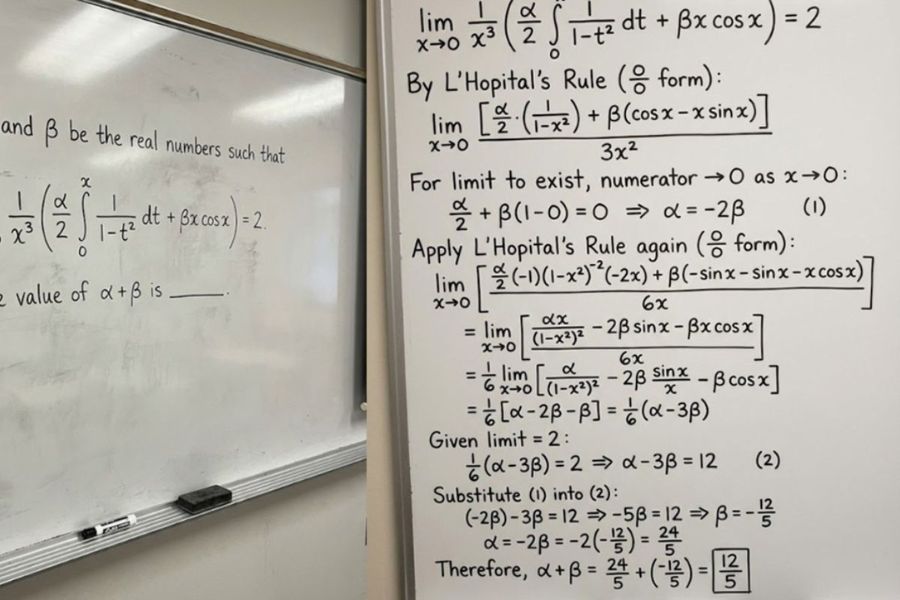 and β be the real numbers such that
1/x³ (α/2 ∫₀ˣ 1/(1-t²) dt + βx cos x) = 2.
value of α+β is ______.
lim x→0 1/x³ (α/2 ∫₀ 1/(1-t²) dt + βx cos x) = 2
By L'Hopital's Rule (0/0 form):
lim x→0 [α/2·(1/(1-x²)) + β(cos x - x sin x)] / 3x²
For limit to exist, numerator → 0 as x→0:
α/2 + β(1-0) = 0 ⇒ α = -2β (1)
Apply L'Hopital's Rule again (0/0 form):
lim x→0 [α/2(-1)(1-x²)⁻²(-2x) + β(-sin x - sin x - x cos x) / 6x]
= lim x→0 [αx/(1-x²)² - 2β sin x - βx cos x] / 6x
= 1/6 lim x→0 [α/(1-x²)² - 2β sin x/x - β cos x]
= 1/6 [α - 2β - β] = 1/6 (α - 3β)
Given limit = 2:
1/6 (α - 3β) = 2 ⇒ α - 3β = 12 (2)
Substitute (1) into (2):
(-2β) - 3β = 12 ⇒ -5β = 12 ⇒ β = -12/5
α = -2β = -2(-12/5) = 24/5
Therefore, α + β = 24/5 + (-12/5) = 12/5